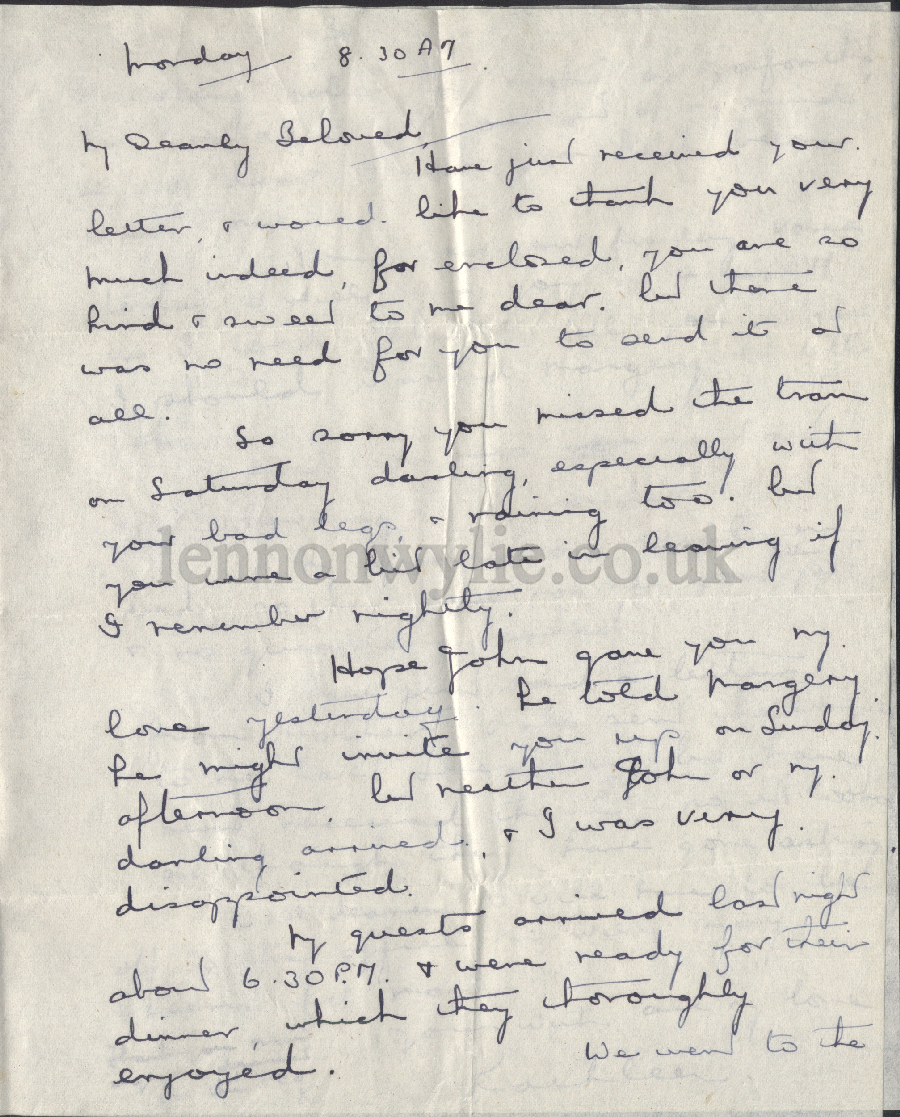 Monday 8.30 AM.
My Dearly Beloved,
Have just received your
letter, & would like to thank you very
much indeed, for enclosed, you are so
kind & sweet to me dear. but there
was no need for you to send it at
all.
So sorry you missed the tram
on Saturday darling, especially with
your bad legs, & raining too. but
lennonwylie.co.uk
you were a bit late in leaving if
I remember rightly.
Hope John gave you my
love yesterday. he told Margery
he might invite you up on Sunday
afternoon, but neither John or my
darling arrived, & I was very
disappointed.
My guests arrived last night
about 6.30 P.M. & were ready for their
dinner, which they thoroughly
enjoyed.
We went to the